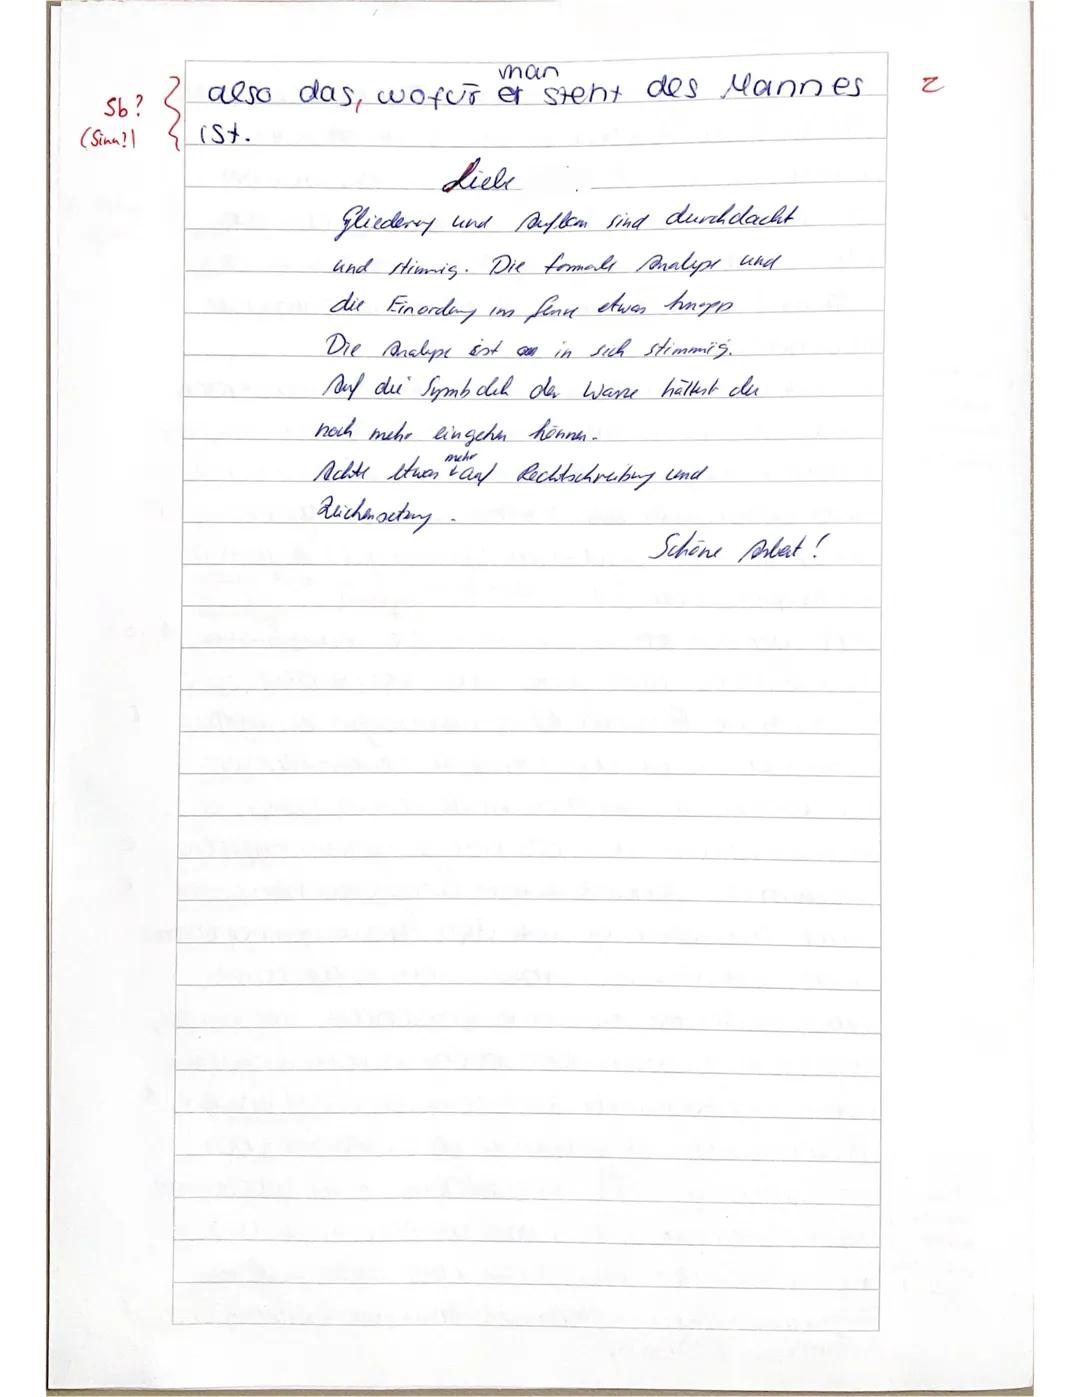 man
also das, wofür er steht des Mannes z
Sb?
(Sinn?) ist.
Liebe
Gliederung und Aufbau sind durchdacht
und stimmig. Die formale Analyse und
die Einordnung ins Genre etwas knapp
Die Analyse ist in sich stimmig.
Auf die Symbolik der Ware hättest du
noch mehr eingehen können.
mehr
Achte etwas auf Rechtschreibung und
Zeichensetzung.
Schöne Arbeit!